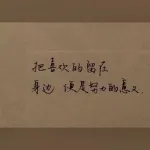 把喜欢的留在
身边 便是努力的意义